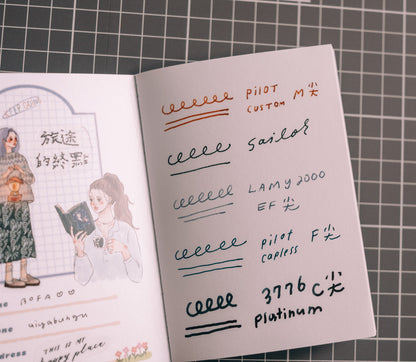 旅途
的終點
BOFA♡♡
THIS IS MY
happy place
PILOT
CUSTOM M尖
Sailor
LAMY 2000
EF尖
Pilot F尖
capless
3776 C尖
platinum